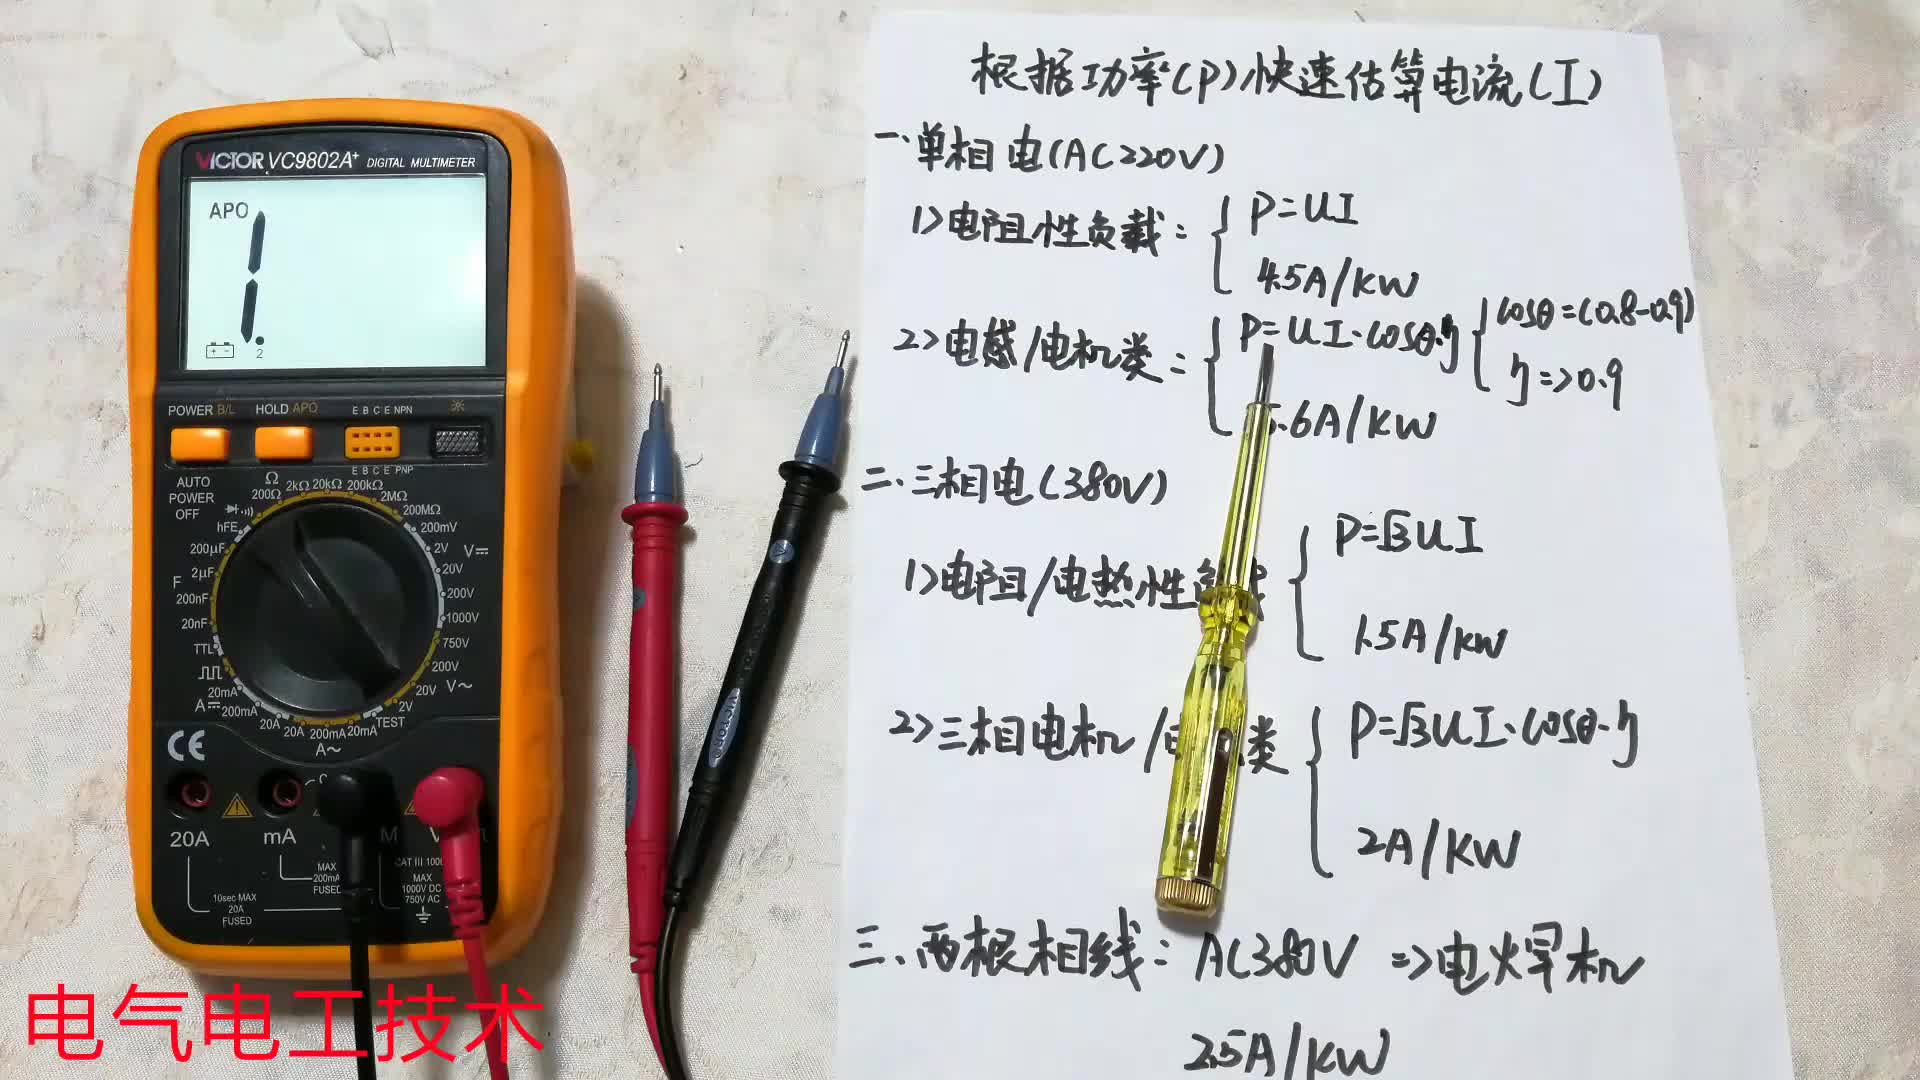 根据功率(P)快速估算电流(I)
一、单相电(AC220V)
1>电阻性负载:
P=UI
4.5A/KW
2>电感/电机类=
P=UI·cosθ·η
cosθ=(0.8-0.9)
η=>0.9
.6A/KW
二、三相电(380V)
1>电阻/电热性负
P=√3UI
1.5A/KW
2>三相电机/ 类
P=√3UI·cosθ·η
2A/KW
三、两根相线: AC380V =>电焊机
2.5A/KW
VICTOR VC9802A+ DIGITAL MULTIMETER
APO
1
2
POWER B/L HOLD APO E B C E NPN
E B C E PNP
AUTO
POWER
OFF
Ω
200Ω 2kΩ 20kΩ 200kΩ 2MΩ 200MΩ
hFE
200mV
2V V
20V
200V
1000V
750V
200V
20V V~
2V
TEST
200μF
2μF
F
200nF
20nF
TTL
20mA
A
200mA
20A
20A 200mA 20mA
A~
CE
20A mA
MAX
200mA
FUSED
10sec MAX
20A
FUSED
CAT III
MAX
1000V DC
750V AC
电气电工技术